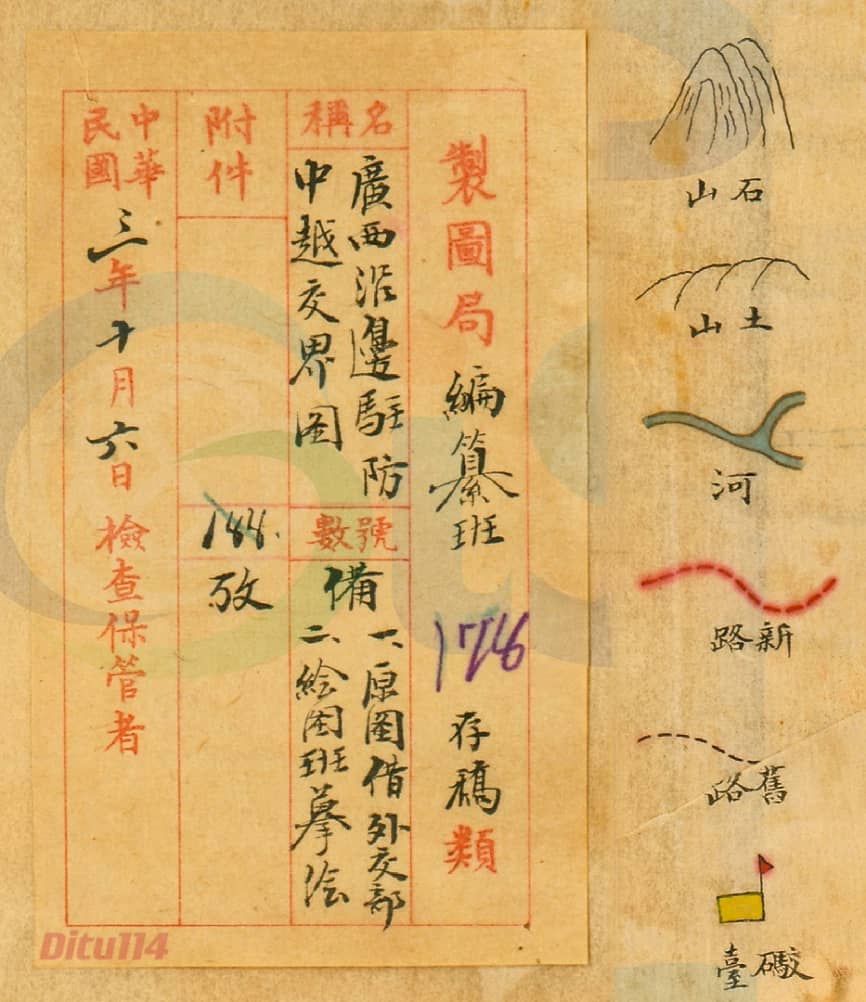 製圖局編纂班 178 存稿類
名稱
廣西沿邊駐防
中越交界图
號數
188.
備
攷
一、原图借外交部
二、绘图班摹绘
附件
中華
民國三年十月六日檢查保管者
石山
土山
河
新路
舊路
礮臺
Ditu114